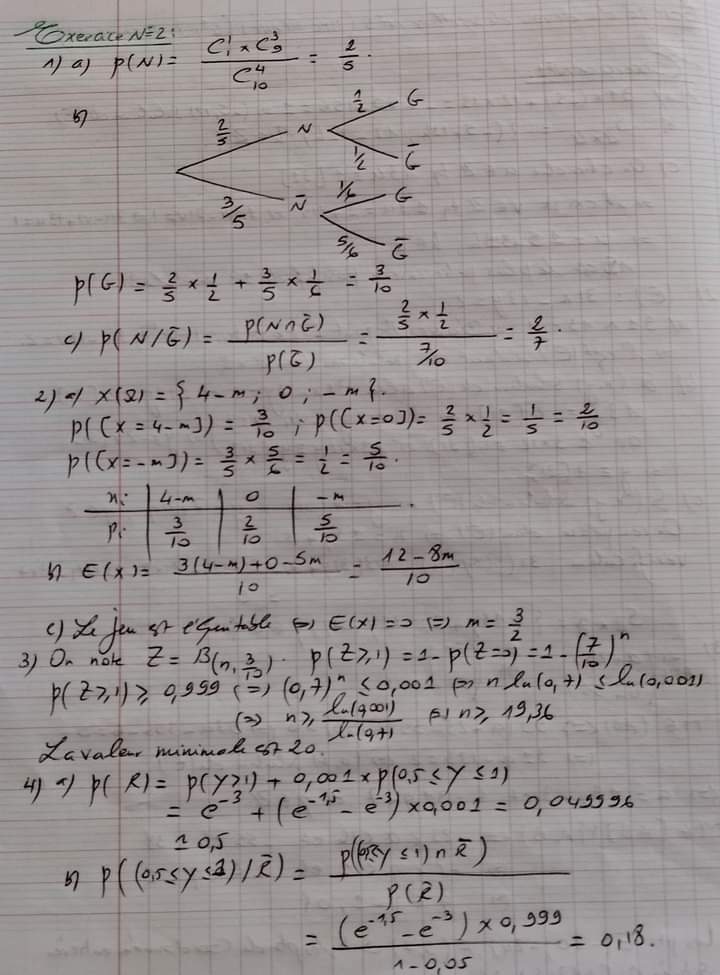 Exercice N=2:
1) a) p(N) = (C₁¹ × C₉³) / C₁₀⁴ = 2/5.
b) 2/5 N 1/2 G
1/2 G̅
3/5 N̅ 1/6 G
5/6 G̅
p(G) = 2/5 × 1/2 + 3/5 × 1/6 = 3/10
c) p(N/G̅) = p(N∩G̅) / p(G̅) = (2/5 × 1/2) / (7/10) = 2/7.
2) a) X(Ω) = { 4-m ; 0 ; -m }.
p([X=4-m]) = 3/10 ; p([X=0]) = 2/5 × 1/2 = 1/5 = 2/10
p([X=-m]) = 3/5 × 5/6 = 1/2 = 5/10.
xi | 4-m | 0 | -m
pi | 3/10 | 2/10 | 5/10
b) E(X) = (3(4-m)+0-5m) / 10 = (12-8m) / 10
c) Le jeu est equitable ⇔ E(X)=0 ⇔ m = 3/2
3) On note Z = B(n, 3/10). p(Z≥1) = 1 - p(Z=0) = 1 - (7/10)ⁿ
p(Z≥1) ≥ 0,999 ⇔ (0,7)ⁿ ≤ 0,001 ⇔ n ln(0,7) ≤ ln(0,001)
⇔ n ≥ ln(0,001) / ln(0,7) ⇔ n ≥ 19,36
La valeur minimale est 20.
4) a) p(R) = p(Y>1) + 0,001 × p(0,5 ≤ Y ≤ 1)
= e⁻³ + (e⁻¹·⁵ - e⁻³) × 0,001 = 0,049996
≃ 0,5
b) p((0,5 ≤ Y ≤ 1) / R̅) = p((0,5 ≤ Y ≤ 1) ∩ R̅) / p(R̅)
= (e⁻¹·⁵ - e⁻³) × 0,999 / (1 - 0,05) = 0,18.